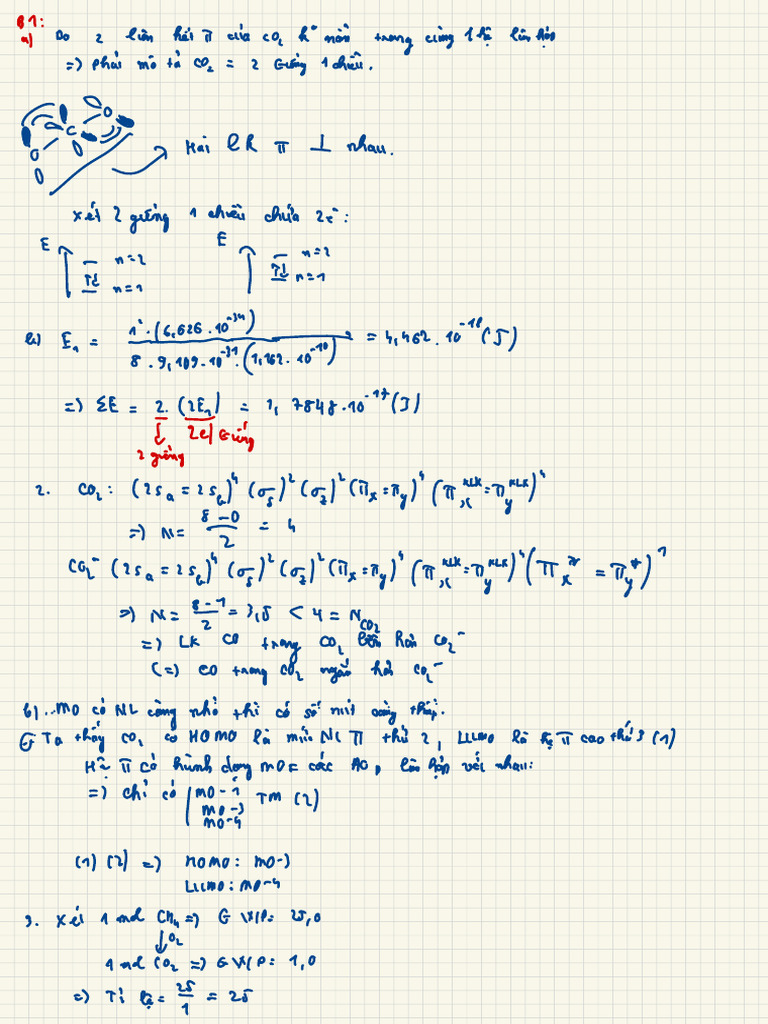 B1:
a) Do 2 liên kết π của CO₂ k nằm trong cùng 1 hệ liên hợp
=) phải mô tả CO₂ = 2 giếng 1 chiều.
O C O
Hai ek π ⊥ nhau.
Xét 2 giếng 1 chiều chứa 2e⁻:
E n=2 n=1 E n=2 n=1
b) E₁ = 1² . (6,626 . 10⁻³⁴) / 8 . 9,109 . 10⁻³¹ . (1,162 . 10⁻¹⁰) = 4,462 . 10⁻¹⁸ (J)
=) ΣE = 2. (2E₁) = 1, 7848 . 10⁻¹⁷ (J)
2e/giếng
2 giếng
2. CO₂ : (2s_a = 2s_b)⁴ (σ_s)² (σ_z)² (π_x = π_y)⁴ (π_x^KLK = π_y^KLK)⁴
=) N = (8 - 0)/2 = 4
CO₂⁻ (2s_a = 2s_b)⁴ (σ_s)² (σ_z)² (π_x = π_y)⁴ (π_x^KLK = π_y^KLK)⁴ (π_x^* = π_y^*)¹
=) N = (8 - 1)/2 = 3,5 < 4 = N_CO₂
=) LK CO trong CO₂ bền hơn CO₂⁻
(=) CO trong CO₂ ngắn hơn CO₂⁻
b) MO có NL càng nhỏ thì có số nút càng thấp.
Ta thấy CO₂ có HOMO là mức NL π thứ 2, LUMO là hệ π cao thứ 3 (1)
Hệ π có hình dạng MO = các AO, liên hợp với nhau:
=) chỉ có MO-1 TM (2)
MO-3
MO-4
(1) (2) =) HOMO : MO-3
LUMO : MO-4
3. Xét 1 mol CH₄ =) G V/P = 25,0
↓ O₂
1 mol CO₂ =) G V/P = 1,0
=) Tỉ lệ = 25/1 = 25